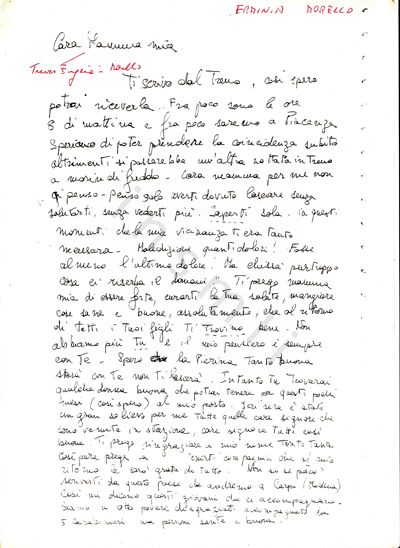 ERMINIA MORELLO
Cara Mamma mia
Treves Eugenia - Morello
Ti scrivo dal Treno, così spero
potrai riceverla. Fra poco sono le ore
5 di mattina e fra poco saremo a Piacenza
Speriamo di poter prendere la coincidenza subito
altrimenti si passerebbe un'altra nottata in treno
a morir di freddo - Cara mamma per me non
penso - penso solo averti dovuto lasciare senza
salutarti, senza vederti più. Saperti sola in questi
momenti che la mia vicinanza ti era tanto
necessaria - Maledizione quanti dolori! Fosse
almeno l'ultimo dolore. Ma chissà purtroppo
cosa ci riserva il domani - Ti prego mamma
mia di essere forte, curarti la tua salute, mangiare
cose sane e buone, assolutamente, che al ritorno
di tutti i Tuoi figli Ti Trovino bene. Non
abbiamo più Tu e il mio pensiero è sempre
con te - Spero che la Pierina Tanto buona
starà con te non Ti lascerà. Intanto tu Troverai
qualche donna buona che potrai tenere per questi pochi
mesi (così spero) al mio posto. Ieri sera è stato
un gran sollievo per me tutte quelle care signore che
sono venute in stazione, care signore tutte così
buone. Ti prego ringraziare a mio nome Tanto Tanto
Così pure prega a compagnia che al mio
ritorno le sarò grata di tutto - Non so se potrò
scriverti da questo paese che andremo a Carpi (Modena)
Così mi dicono questi giovani che ci accompagnano -
Siamo in otto povere disgraziate accompagnate da
5 carabinieri ma persone sante e buone.